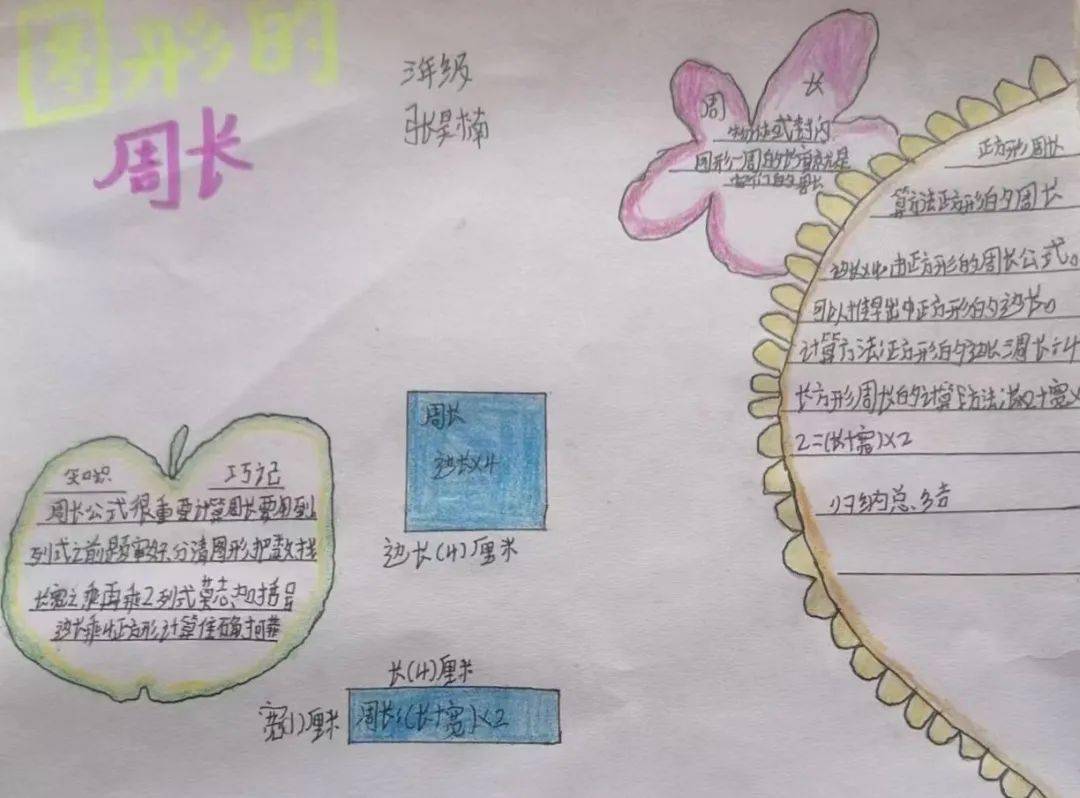 图形的
周长
三年级
张昊楠
周 长
物体或封闭
图形一周的长度就是
它们的周长
正方形周长
算方法正方形的周长
边长x4由正方形的周长公式。
可以推算出中正方形的边长。
计算方法正方形的边长=周长÷4
长方形周长的计算方法
2=(长+宽)×2
归纳总结
知识 巧记
周长公式很重要计算周长要用到
列式之前题审好分清图形把数找
长宽之乘再乘2列式莫忘加括号
边长乘4正方形计算准确
周长
边长×4
边长(4)厘米
长(4)厘米
宽(1)厘米
周长:(长+宽)×2